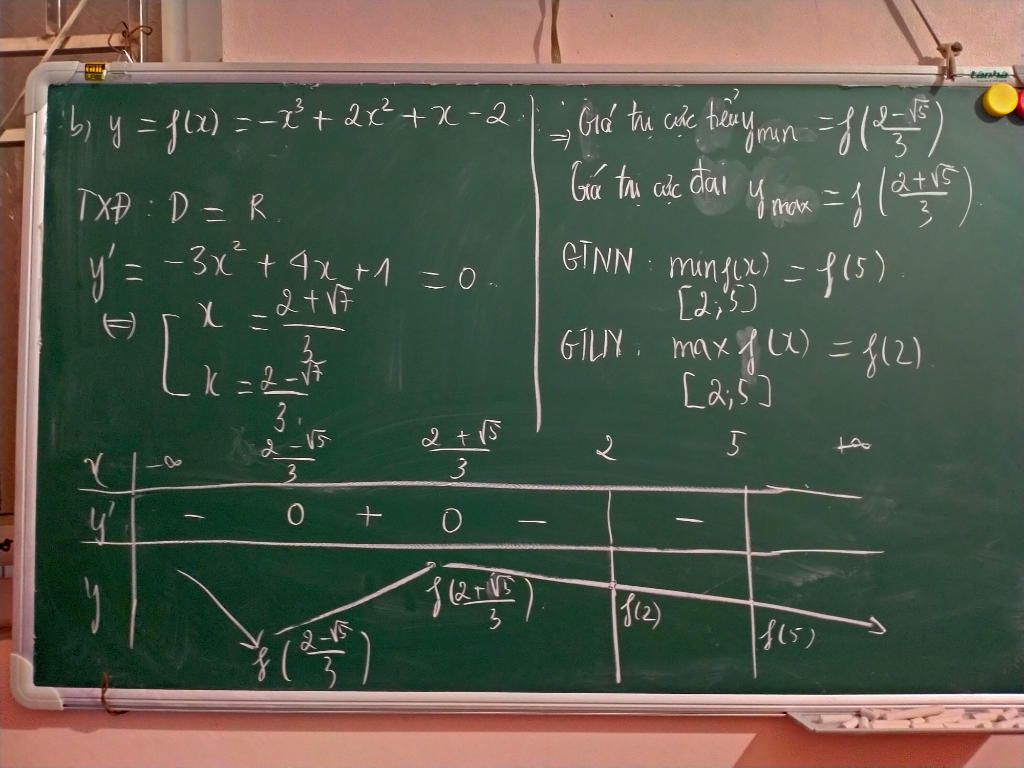 b, y = f(x) = -x³ + 2x² + x - 2
TXĐ : D = R.
y' = -3x² + 4x + 1 = 0.
(=) [ x = (2 + √7)/3
x = (2 - √7)/3.
=> Giá trị cực tiểu y min = f((2-√5)/3)
Giá trị cực đại y max = f((2+√5)/3).
GTNN : min f(x) = f(5).
[2;5]
GTLN : max f(x) = f(2).
[2;5]
x -∞ (2-√5)/3 (2+√5)/3 2 5 +∞
y' - 0 + 0 - -
y f((2-√5)/3) f((2+√5)/3). f(2) f(5)
tanha